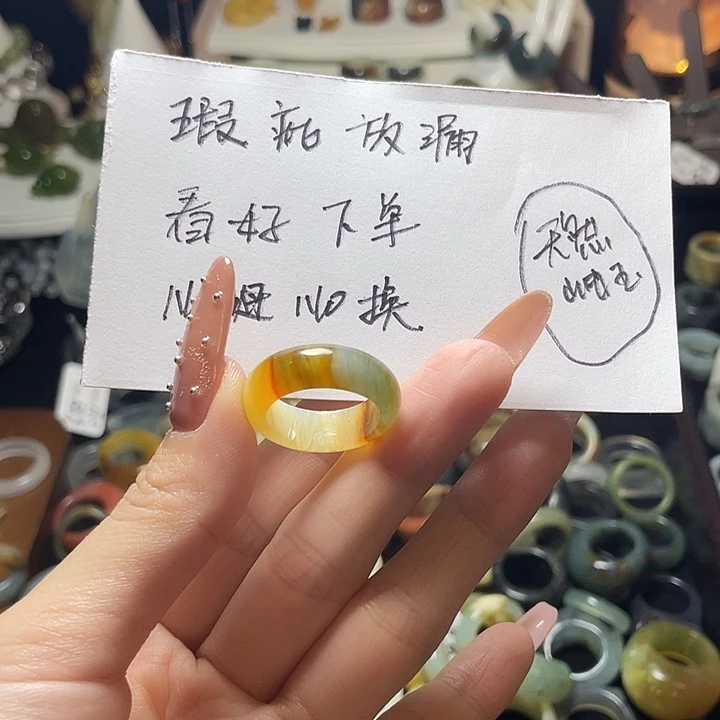 瑕疵放漏
看好下单
No 退 No 换
天然